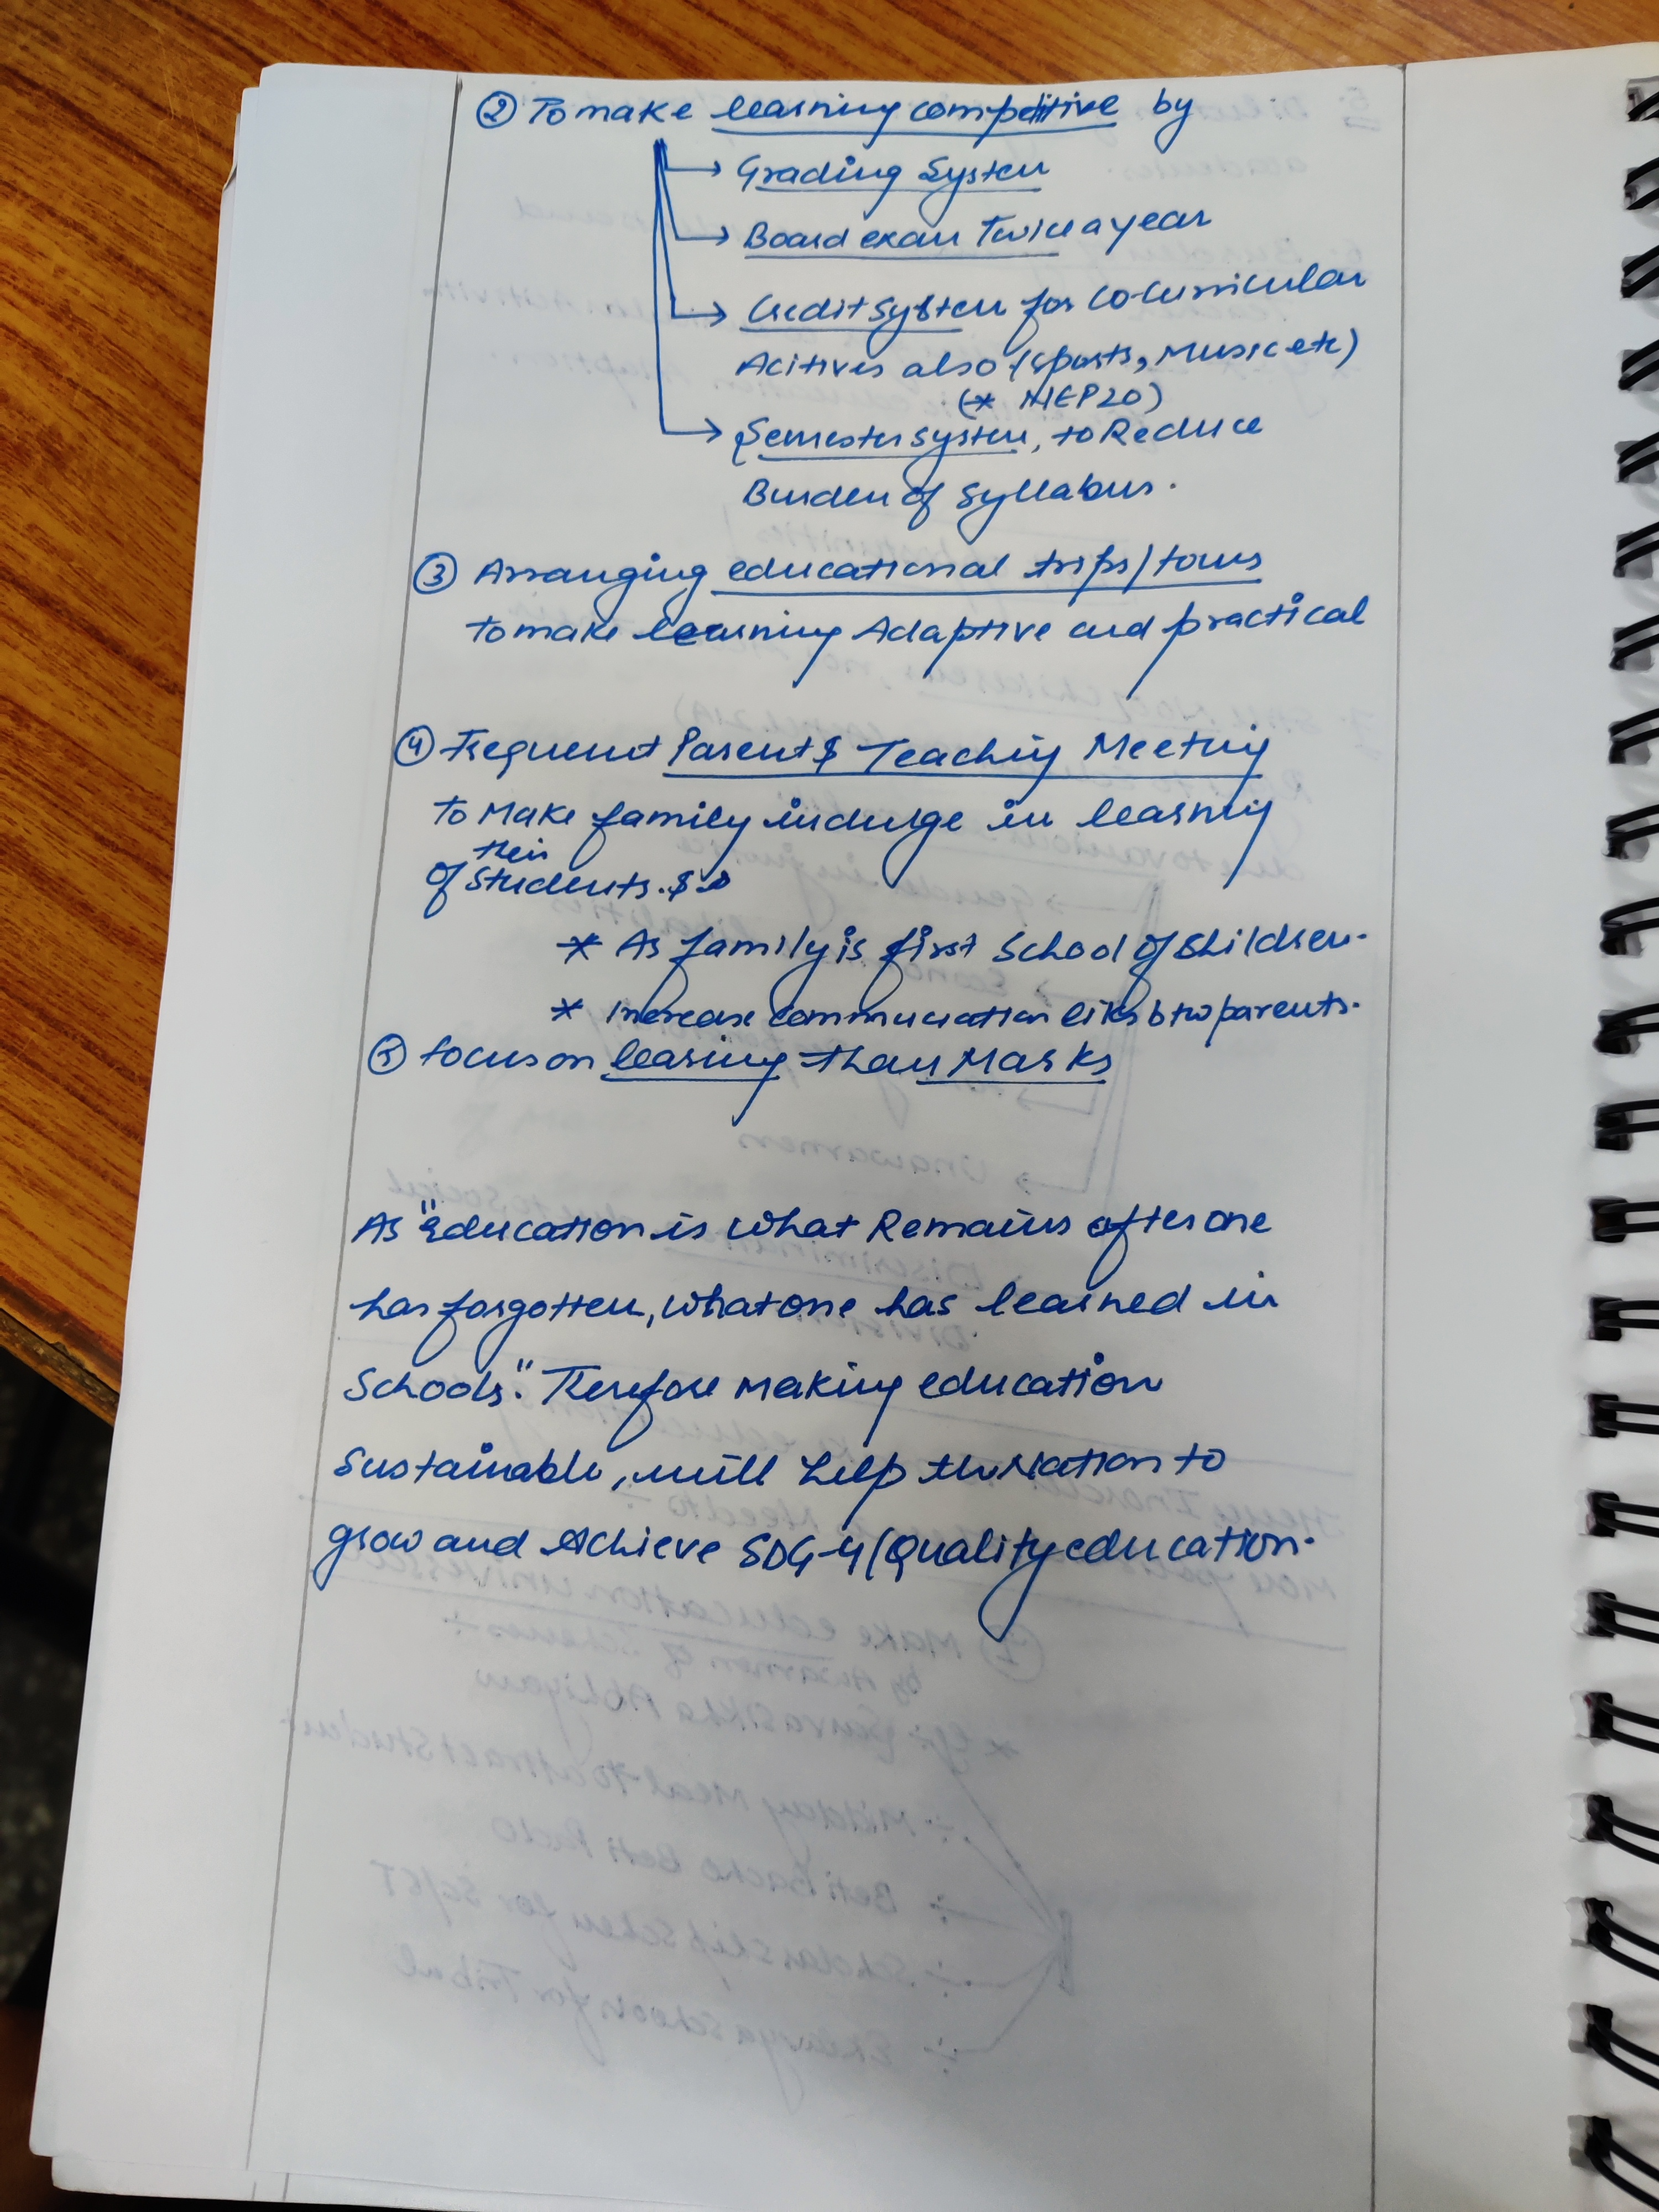 ② To make learning competitive by
→ Grading System
→ Board exam Twice a year
→ Credit System for Co-Curricular
Acitives also (sports, Music etc)
(* NEP20)
→ Semester system, to Reduce
Burden of Syllabus.
③ Arranging educational trips/tours
to make learning Adaptive and practical
④ Frequent Parent & Teaching Meeting
to Make family indulge in learning
their
of students.
* As family is first School of Children.
* increase communication links btw parents.
⑤ focus on learing than Marks
As "Education is what Remains after one
has forgotten, what one has learned in
Schools". Therefore making education
Sustainable, will help the Nation to
grow and Achieve SDG-4 (Quality education.